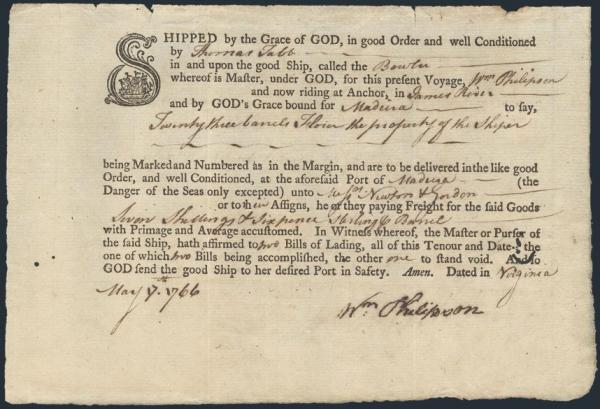 SHIPPED by the Grace of GOD, in good Order and well Conditioned
by Thomas Tabb
in and upon the good Ship, called the
whereof is Master, under GOD, for this present Voyage, Wm Philipson
and now riding at Anchor, in James River
and by GOD's Grace bound for Madeira to say,
Twenty three barrels Flour the property of the Shiper
being Marked and Numbered as in the Margin, and are to be delivered in the like good
Order, and well Conditioned, at the aforesaid Port of Madeira (the
Danger of the Seas only excepted) unto Messrs Newton & Gordon
or to their Assigns, he or they paying Freight for the said Goods
Seven Shillings & Sixpence Sterling Barrel
with Primage and Average accustomed. In Witness whereof, the Master or Purser of
the said Ship, hath affirmed to two Bills of Lading, all of this Tenour and Date, the
one of which two Bills being accomplished, the other one to stand void. And so
GOD send the good Ship to her desired Port in Safety. Amen. Dated in Virginia
May 7th 1766
Wm Philipson